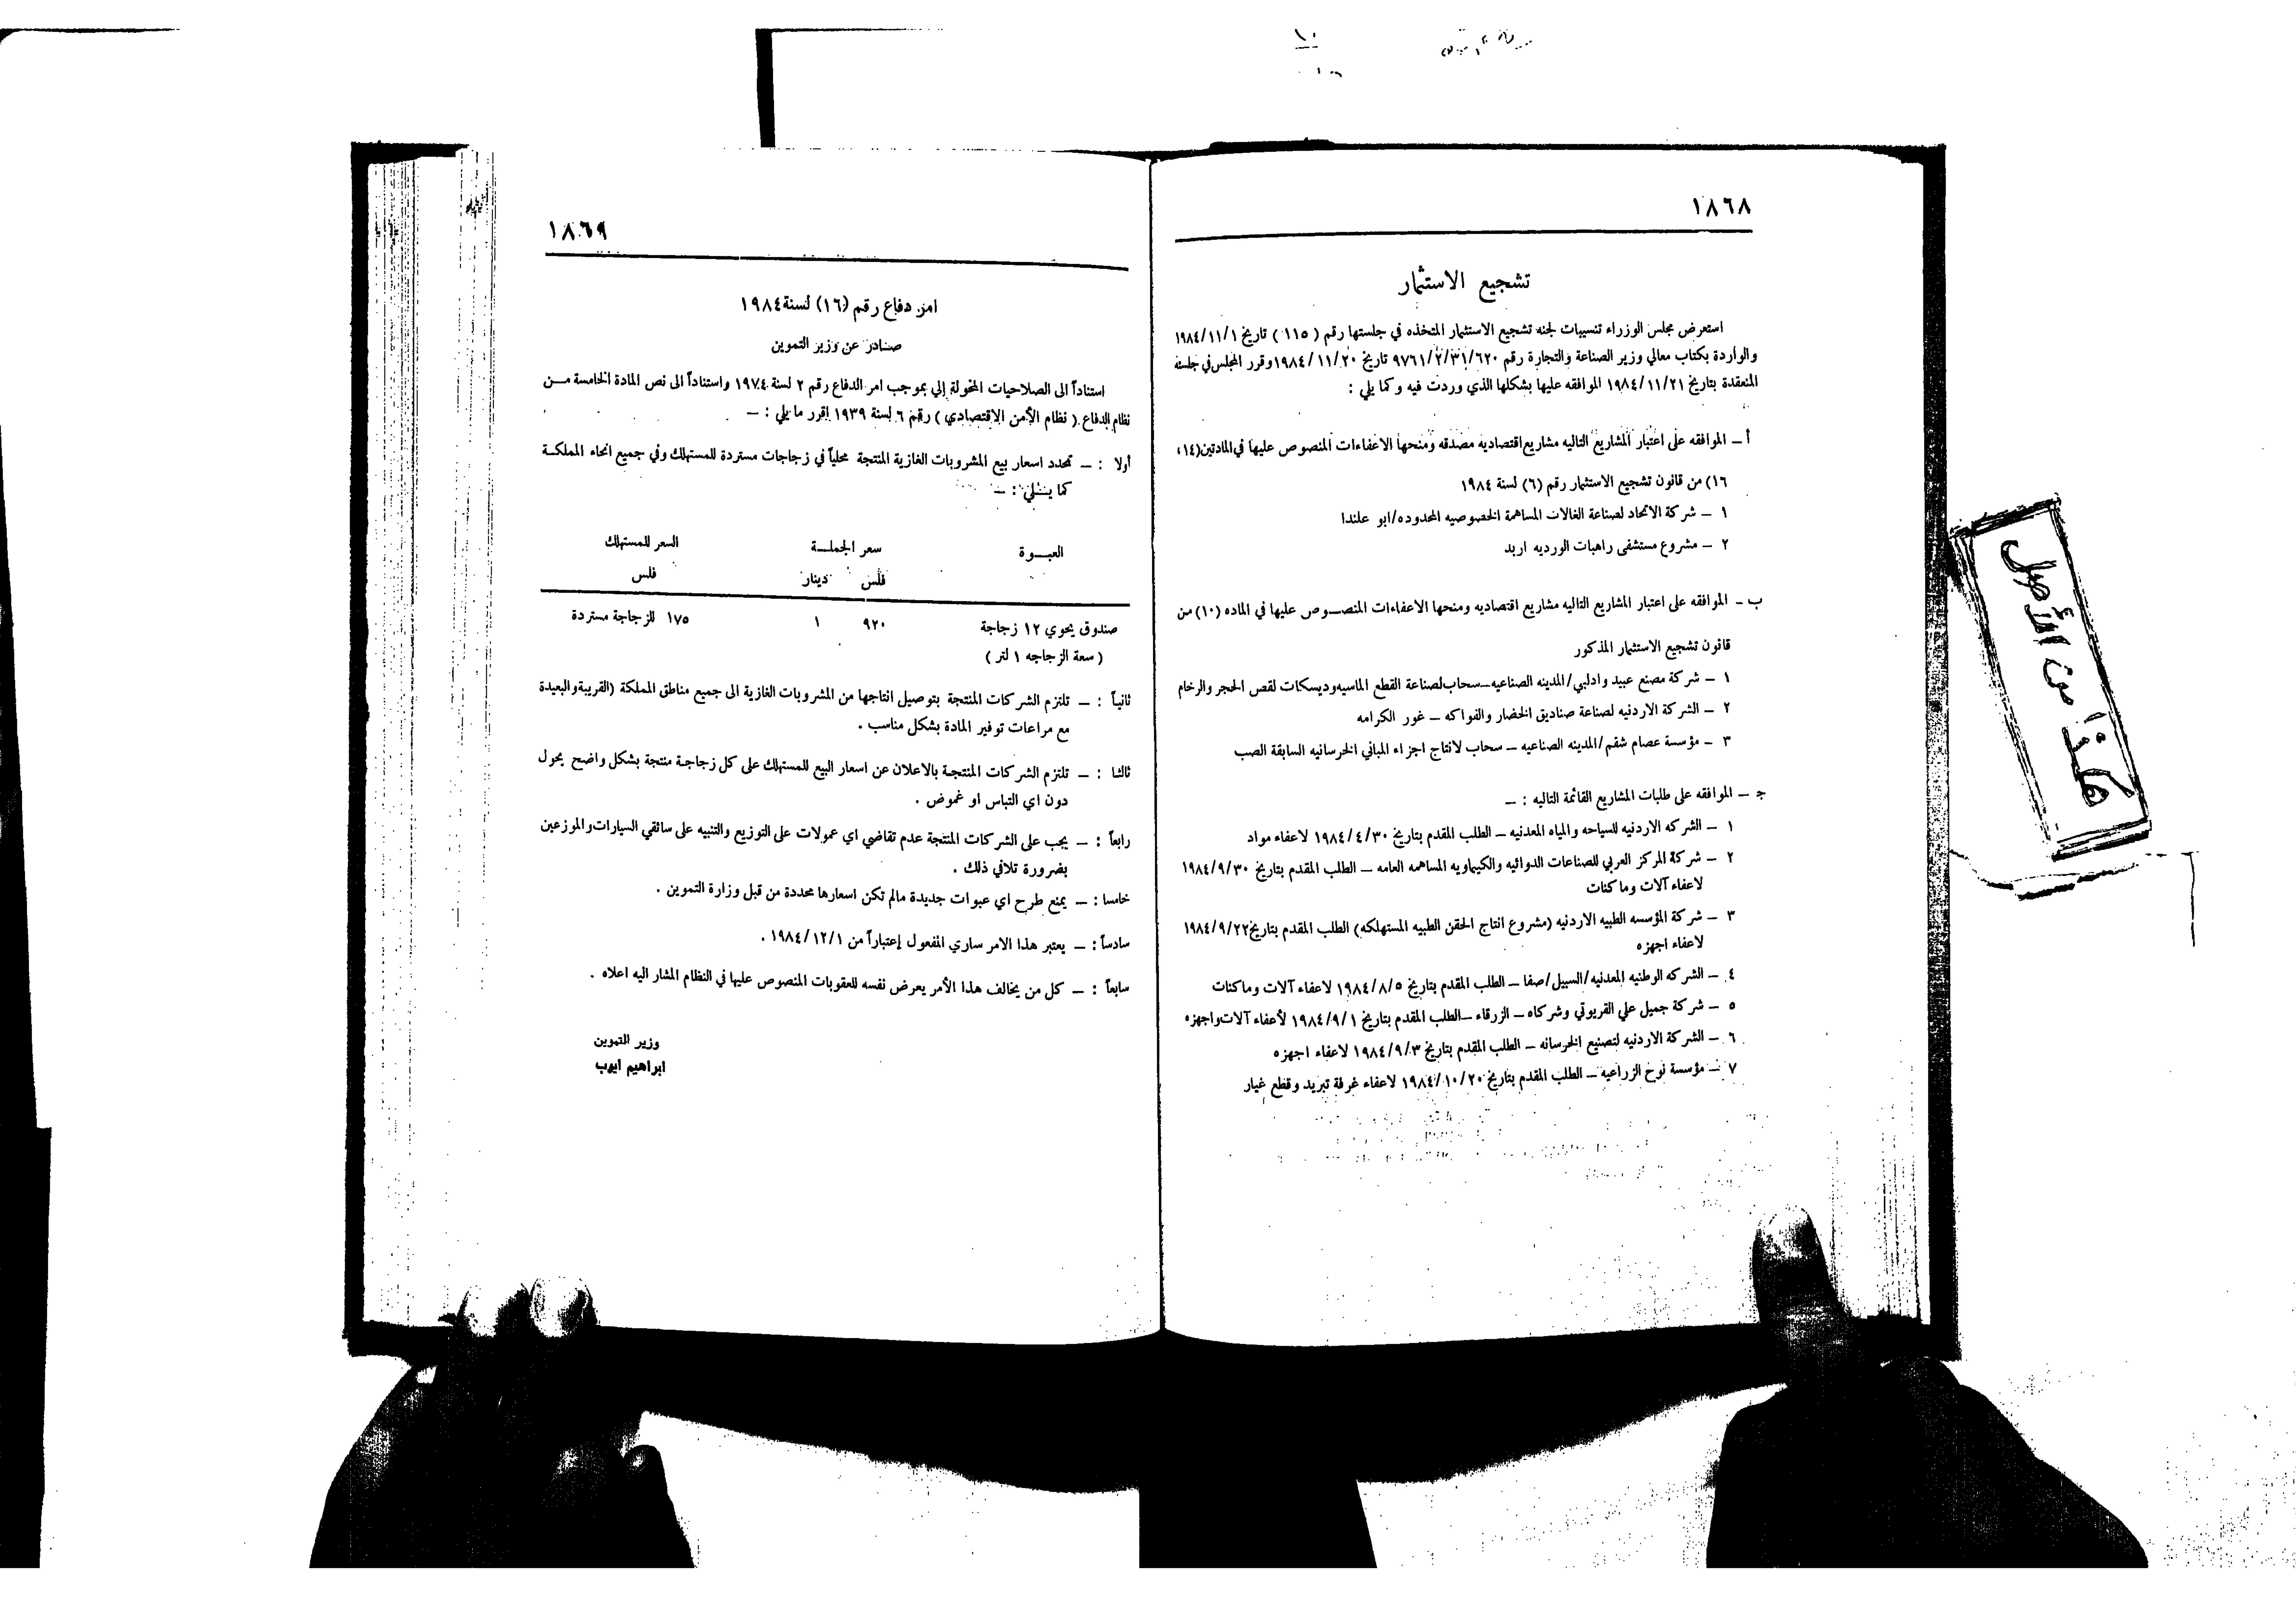 ١٨٦٨
تشجيع الاستثمار
استعرض مجلس الوزراء تنسيبات لجنه تشجيع الاستثمار المتخذه في جلستها رقم ( ١١٥ ) تاريخ ١٩٨٤/١١/١
والواردة بكتاب معالي وزير الصناعة والتجارة رقم ٩٧٦١/٢/٣١/٦٢٠ تاريخ ١٩٨٤/١١/٢٠ وقرر المجلس في جلسته
المنعقدة بتاريخ ١٩٨٤/١١/٢١ الموافقه عليها بشكلها الذي وردت فيه وكما يلي :
أ – الموافقه على اعتبار المشاريع التاليه مشاريع اقتصاديه مصدقه ومنحها الاعفاءات المنصوص عليها في المادتين (١٤،
١٦) من قانون تشجيع الاستثمار رقم (٦) لسنة ١٩٨٤
١ – شركة الاتحاد لصناعة الغالات المساهمة الخصوصيه المحدوده/ابو علندا
٢ – مشروع مستشفى راهبات الورديه اربد
ب – الموافقه على اعتبار المشاريع التاليه مشاريع اقتصاديه ومنحها الاعفاءات المنصوص عليها في الماده (١٠) من
قانون تشجيع الاستثمار المذكور
١ – شركة مصنع عبيد وادلبي/المدينه الصناعيه–سحاب لصناعة القطع الماسيه وديسكات لقص الحجر والرخام
٢ – الشركة الاردنيه لصناعة صناديق الخضار والفواكه – غور الكرامه
٣ – مؤسسة عصام شقم/المدينه الصناعيه – سحاب لانتاج اجزاء المباني الخرسانيه السابقة الصب
ج – الموافقه على طلبات المشاريع القائمة التاليه : –
١ – الشركه الاردنيه للسياحه والمياه المعدنيه – الطلب المقدم بتاريخ ١٩٨٤/٤/٣٠ لاعفاء مواد
٢ – شركة المركز العربي للصناعات الدوائيه والكيماويه المساهمه العامه – الطلب المقدم بتاريخ ١٩٨٤/٩/٣٠
لاعفاء آلات وماكنات
٣ – شركة المؤسسه الطبيه الاردنيه (مشروع انتاج الحقن الطبيه المستهلكه) الطلب المقدم بتاريخ ١٩٨٤/٩/٢٢
لاعفاء اجهزه
٤ – الشركه الوطنيه المعدنيه/السبيل/صفا – الطلب المقدم بتاريخ ١٩٨٤/٨/٥ لاعفاء آلات وماكنات
٥ – شركة جميل علي القريوتي وشركاه – الزرقاء –الطلب المقدم بتاريخ ١٩٨٤/٩/١ لأعفاء آلات واجهزه
٦ – الشركة الاردنيه لتصنيع الخرسانه – الطلب المقدم بتاريخ ١٩٨٤/٩/٣ لاعفاء اجهزه
٧ – مؤسسة نوح الزراعيه – الطلب المقدم بتاريخ ١٩٨٤/١٠/٢٠ لاعفاء غرفة تبريد وقطع غيار
١٨٦٩
امر دفاع رقم (١٦) لسنة ١٩٨٤
صادر عن وزير التموين
استناداً الى الصلاحيات المخولة إلي بموجب امر الدفاع رقم ٢ لسنة ١٩٧٤ واستناداً الى نص المادة الخامسة مـن
نظام الدفاع ( نظام الأمن الاقتصادي ) رقم ٦ لسنة ١٩٣٩ اقرر ما يلي : –
أولا : – تحدد اسعار بيع المشروبات الغازية المنتجة محلياً في زجاجات مستردة للمستهلك وفي جميع انحاء المملكة
كما يـلي : –
العبـوة سعر الجملـة السعر للمستهلك
فلس دينار فلس
صندوق يحوي ١٢ زجاجة ٩٢٠ ١ ١٧٥ للزجاجة مستردة
( سعة الزجاجه ١ لتر )
ثانياً : – تلتزم الشركات المنتجة بتوصيل انتاجها من المشروبات الغازية الى جميع مناطق المملكة (القريبة والبعيدة
مع مراعات توفير المادة بشكل مناسب .
ثالثا : – تلتزم الشركات المنتجة بالاعلان عن اسعار البيع للمستهلك على كل زجاجة منتجة بشكل واضح يحول
دون اي التباس او غموض .
رابعاً : – يجب على الشركات المنتجة عدم تقاضي اي عمولات على التوزيع والتنبيه على سائقي السيارات والموزعين
بضرورة تلافي ذلك .
خامسا : – يمنع طرح اي عبوات جديدة مالم تكن اسعارها محددة من قبل وزارة التموين .
سادساً : – يعتبر هذا الامر ساري المفعول إعتباراً من ١٩٨٤/١٢/١ .
سابعاً : – كل من يخالف هذا الأمر يعرض نفسه للعقوبات المنصوص عليها في النظام المشار اليه اعلاه .
وزير التموين
ابراهيم ايوب
هكذا من الأصل